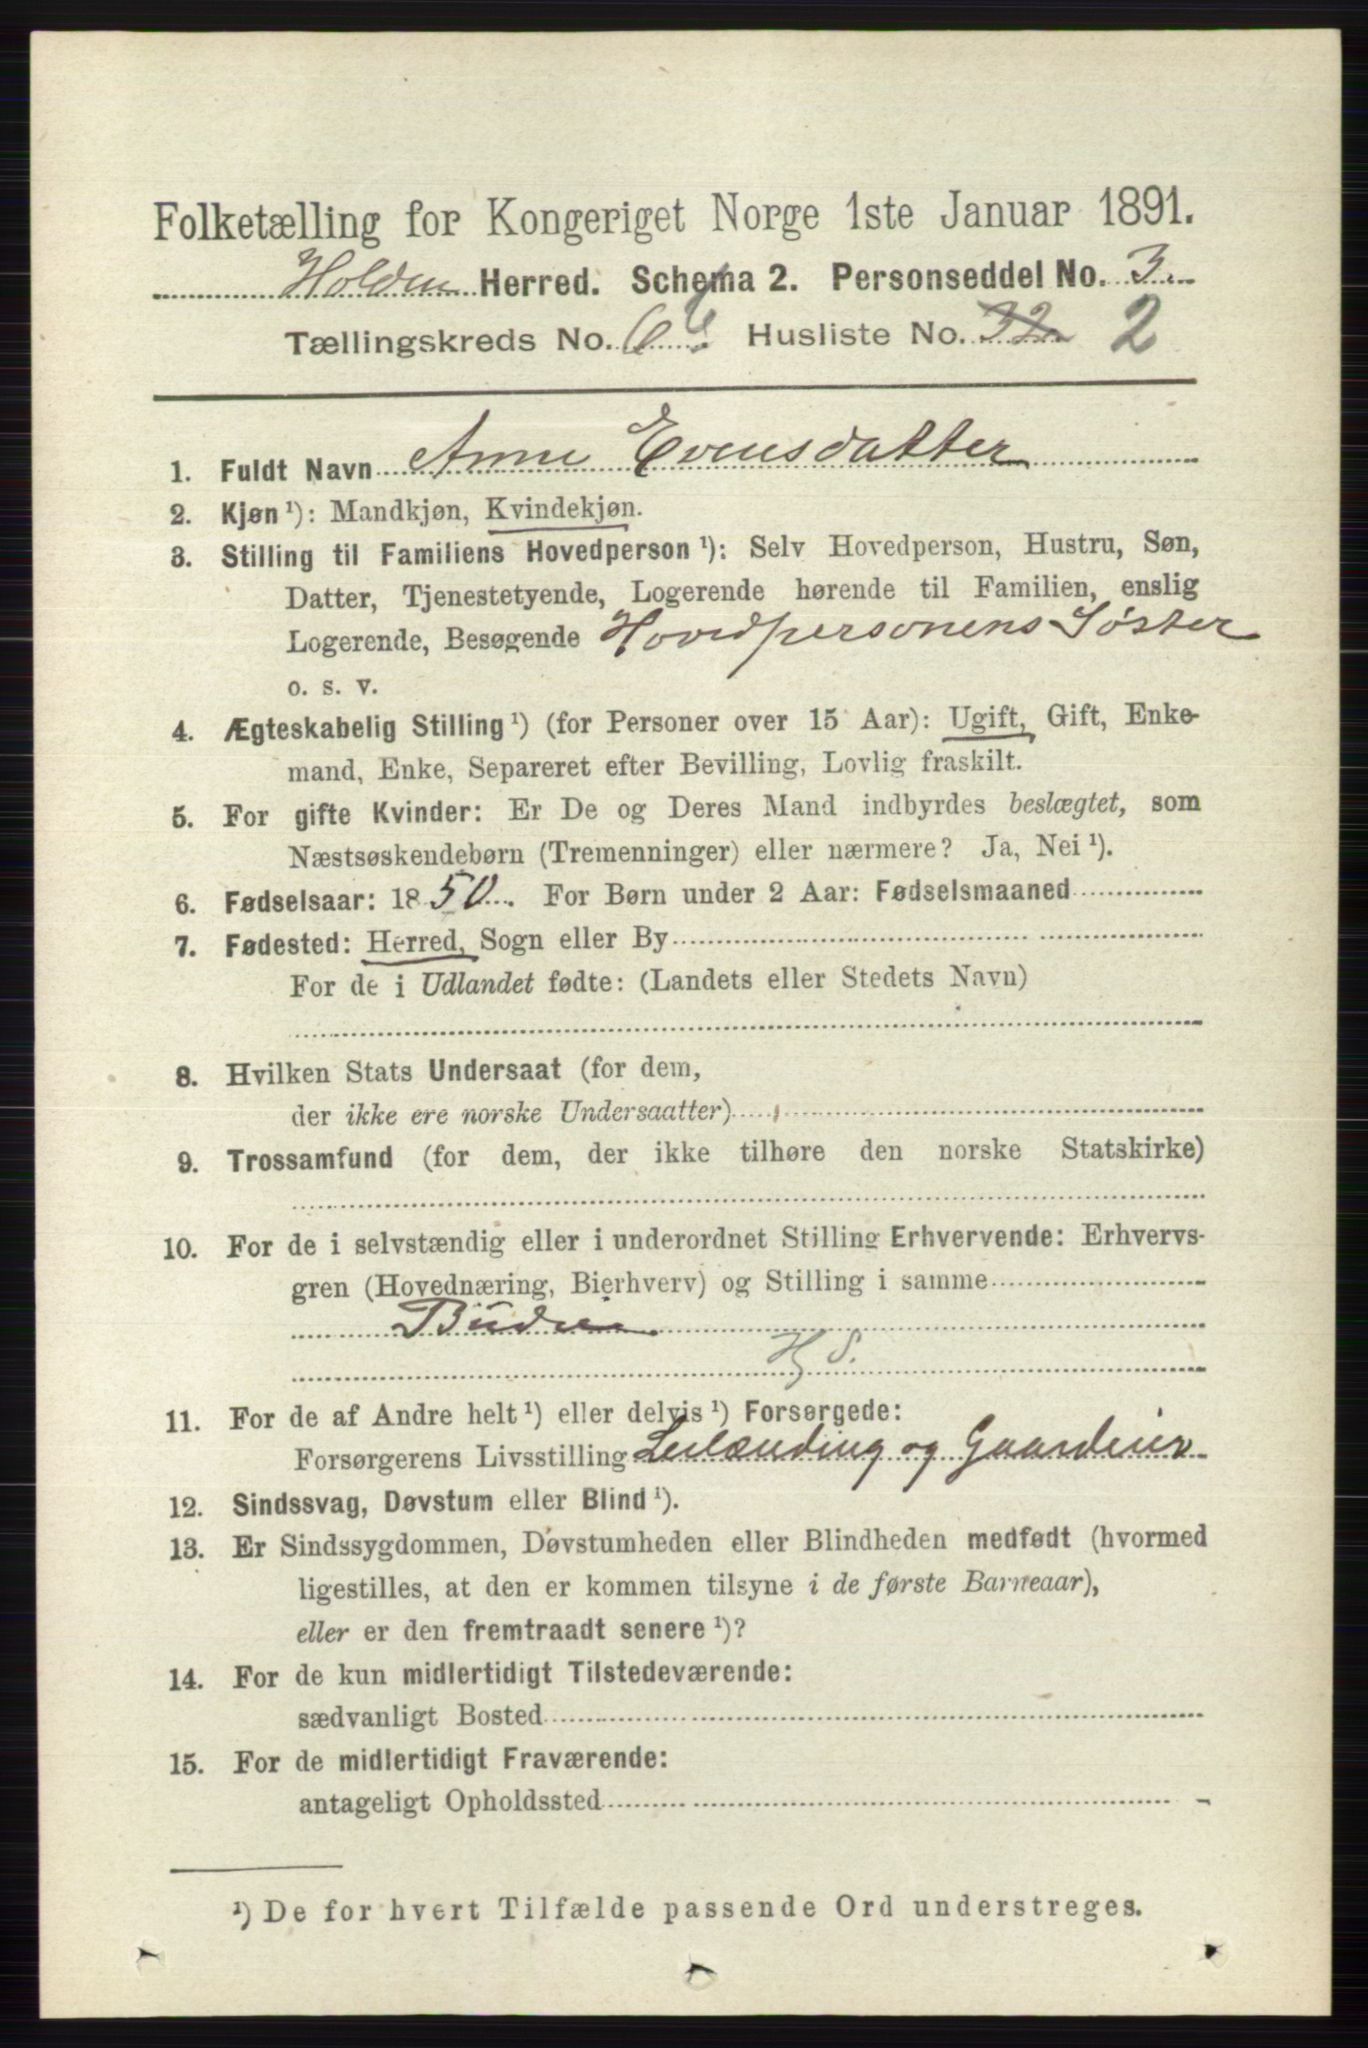 Folketælling for Kongeriget Norge 1ste Januar 1891.
Holden Herred. Schema 2. Personseddel No. 3.
Tællingskreds No. 6 Husliste No. 32 2
1. Fuldt Navn Anne Evensdatter
2. Kjøn ¹): Mandkjøn, Kvindekjøn.
3. Stilling til Familiens Hovedperson ¹): Selv Hovedperson, Hustru, Søn,
Datter, Tjenestetyende, Logerende hørende til Familien, enslig
Logerende, Besøgende Hovedpersonens Søster
o. s. v.
4. Ægteskabelig Stilling ¹) (for Personer over 15 Aar): Ugift, Gift, Enke-
mand, Enke, Separeret efter Bevilling, Lovlig fraskilt.
5. For gifte Kvinder: Er De og Deres Mand indbyrdes beslægtet, som
Næstsøskendebørn (Tremenninger) eller nærmere? Ja, Nei ¹).
6. Fødselsaar: 1850. For Børn under 2 Aar: Fødselsmaaned
7. Fødested: Herred, Sogn eller By
For de i Udlandet fødte: (Landets eller Stedets Navn)
8. Hvilken Stats Undersaat (for dem,
der ikke ere norske Undersaatter)
9. Trossamfund (for dem, der ikke tilhøre den norske Statskirke)
10. For de i selvstændig eller i underordnet Stilling Erhvervende: Erhvervs-
gren (Hovednæring, Bierhverv) og Stilling i samme
Budeie
H S.
11. For de af Andre helt ¹) eller delvis ¹) Forsørgede:
Forsørgerens Livsstilling Leilænding og Gaardeier
12. Sindssvag, Døvstum eller Blind ¹).
13. Er Sindssygdommen, Døvstumheden eller Blindheden medfødt (hvormed
ligestilles, at den er kommen tilsyne i de første Barneaar),
eller er den fremtraadt senere ¹)?
14. For de kun midlertidigt Tilstedeværende:
sædvanligt Bosted
15. For de midlertidigt Fraværende:
antageligt Opholdssted
¹) De for hvert Tilfælde passende Ord understreges.